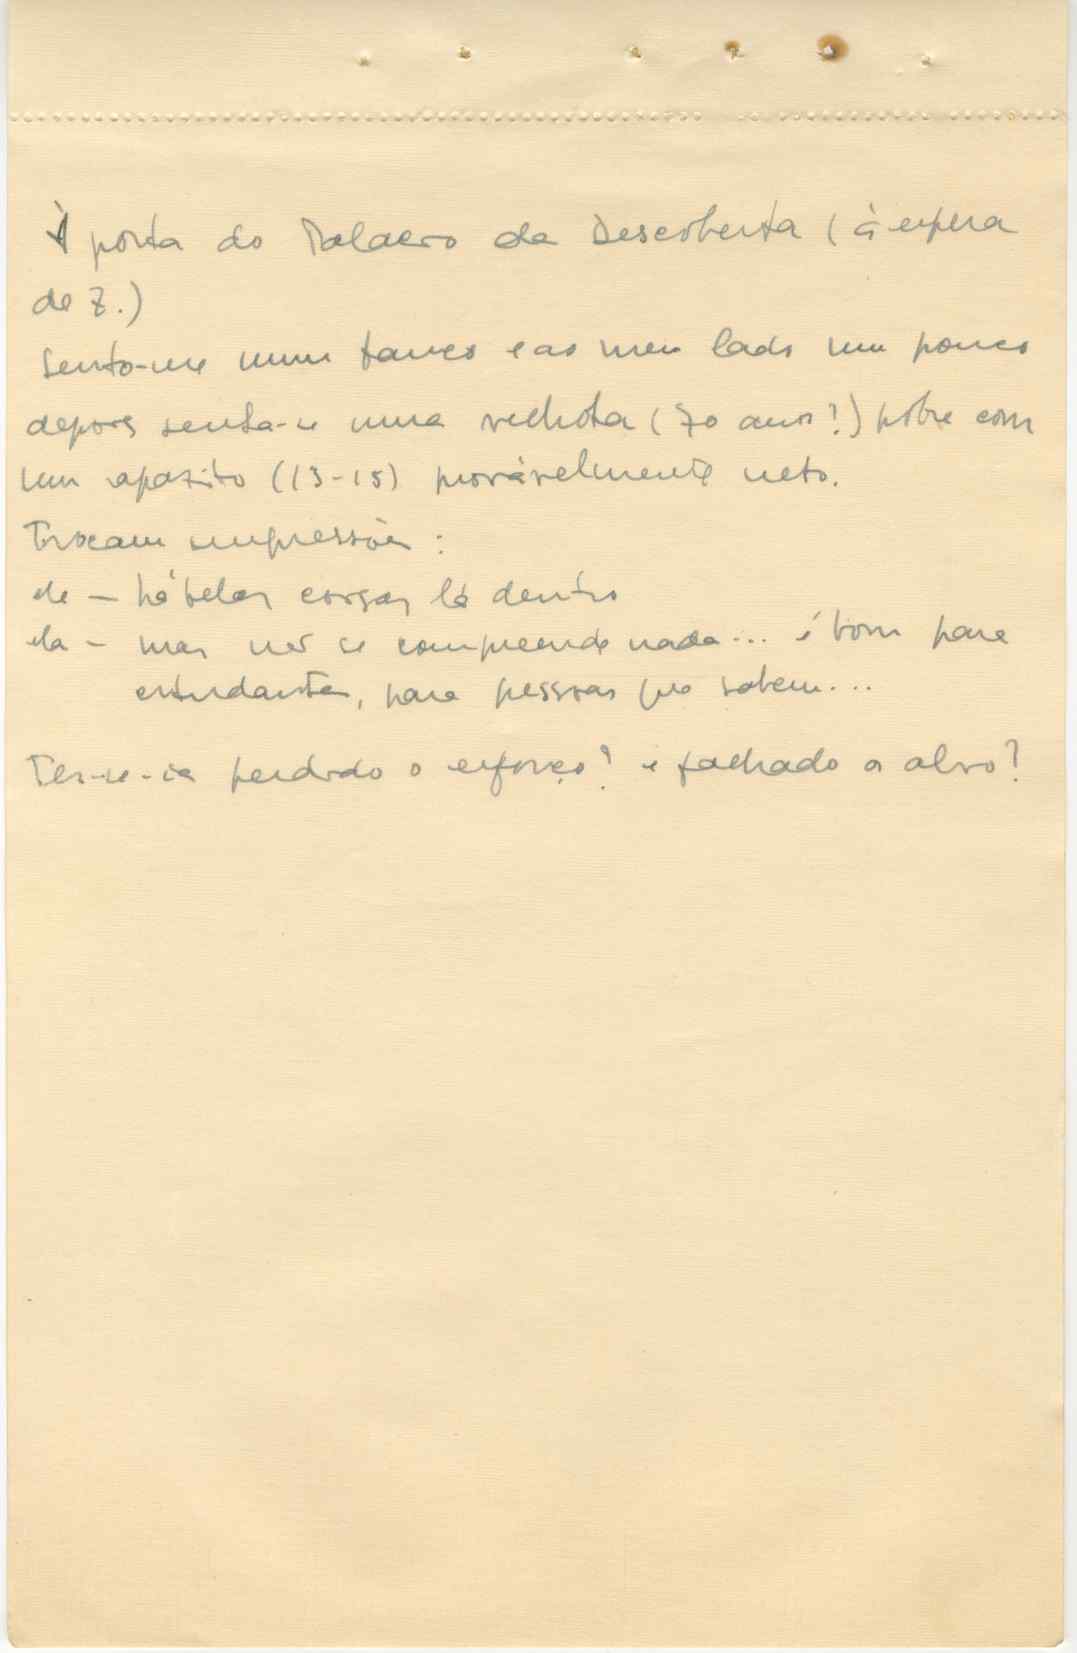 À porta do Palacio da Descoberta (à espera
de Z.)
Sento-me num banco e ao meu lado um pouco
depois senta-se uma velhota (70 anos?) pobre com
um rapazito (13-15) provàvelmente neto.
Trocam impressões:
ele — há belas coisas lá dentro
ela — mas não se compreende nada... é bom para
estudantes, para pessoas que sabem...
Ter-se-ia perdido o esforço? e falhado o alvo?